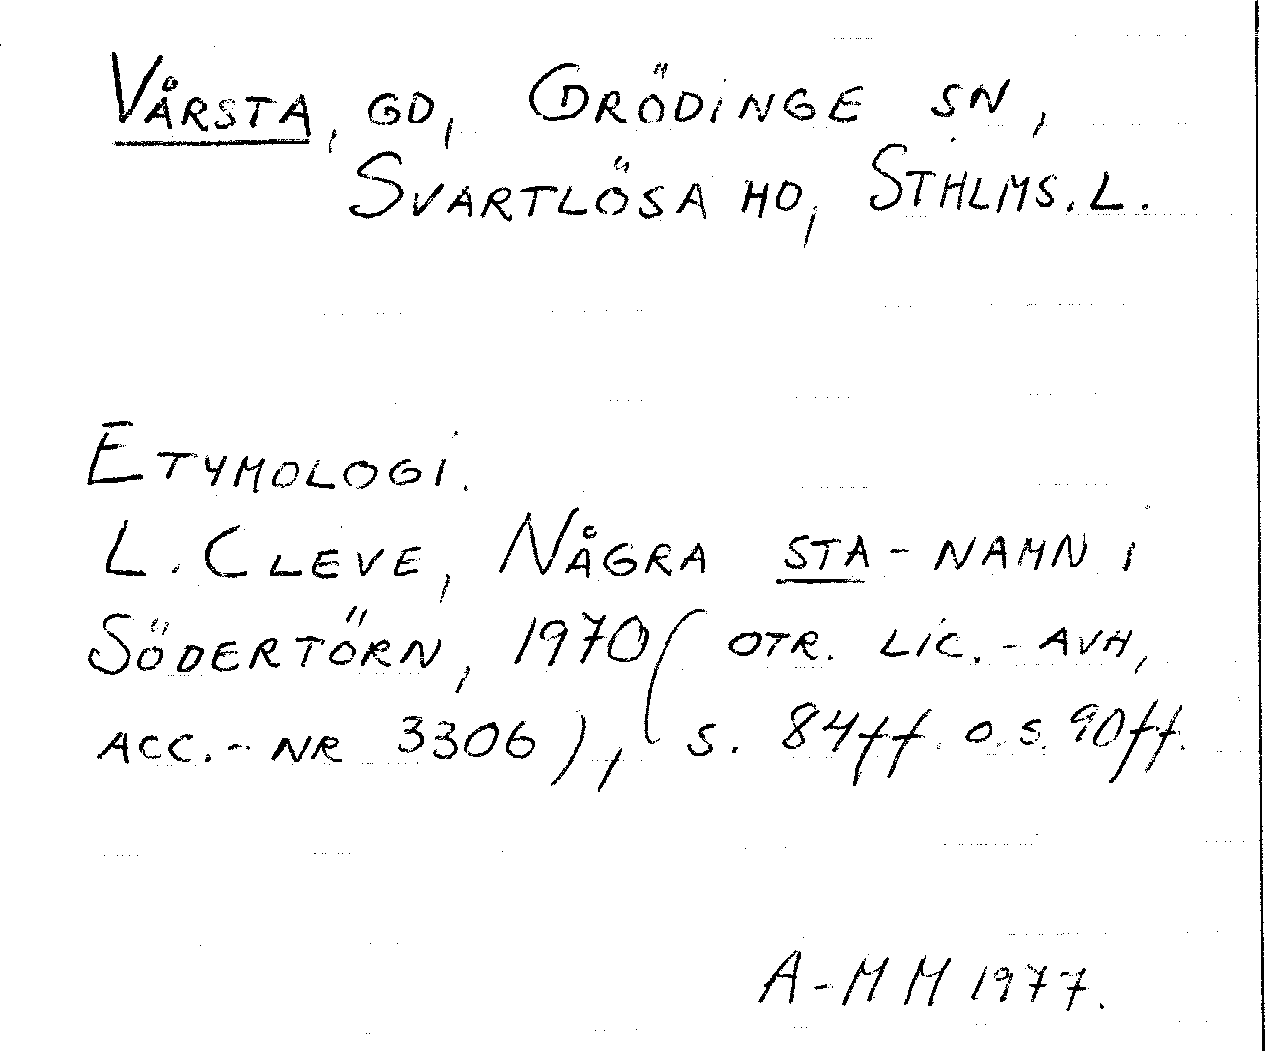 VÅRSTA, GD, GRÖDINGE SN,
SVARTLÖSA HD, STHLMS. L.
ETYMOLOGI.
L. CLEVE, NÅGRA STA-NAMN I
SÖDERTÖRN, 1970 (OTR. LIC.-AVH,
ACC.-NR 3306), S. 84ff. O. S. 90ff.
A-MM 1977.